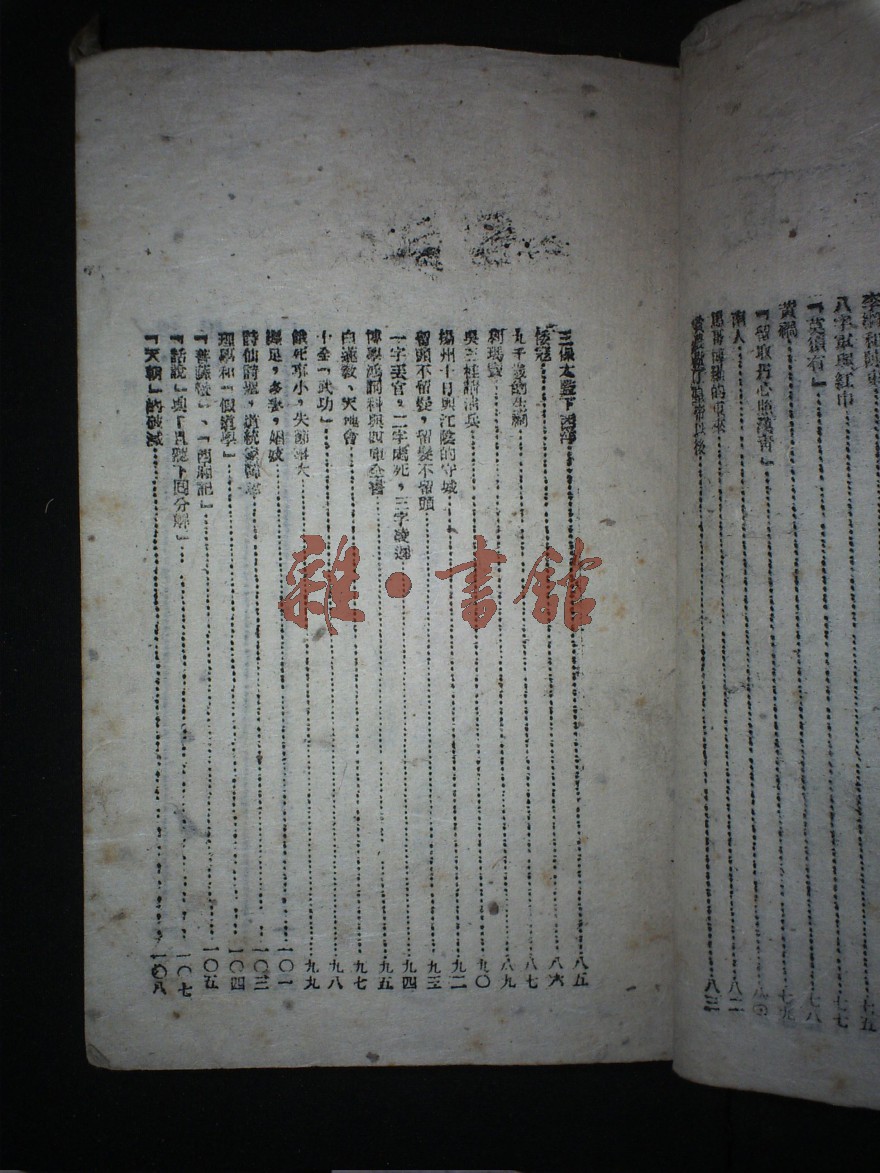 八字軍與紅巾……七七
『莫須有』……七八
黃禍……七九
『留取丹心照漢青』……八〇
南人……八二
馬哥博羅的東來……八三
三保太監下西洋……八五
倭寇……八六
九千歲的生祠……八七
利瑪竇……八九
吳三桂請清兵……九〇
揚州十日與江陰的守城……九二
留頭不留髮，留髮不留頭……九三
一字丟官，二字處死，三字凌遲……九四
博學鴻詞科與四庫全書……九五
白蓮教、天地會……九七
十全『武功』……九八
餓死事小，失節事大……九九
纏足，多妻，娼妓……一〇一
詩仙詩聖，道統……一〇三
理學和『假道學』……一〇四
『菩薩蠻』、『西廂記』……一〇五
『話說』與『且聽下回分解』……一〇七
『天朝』的破滅……一〇八
雜·書館